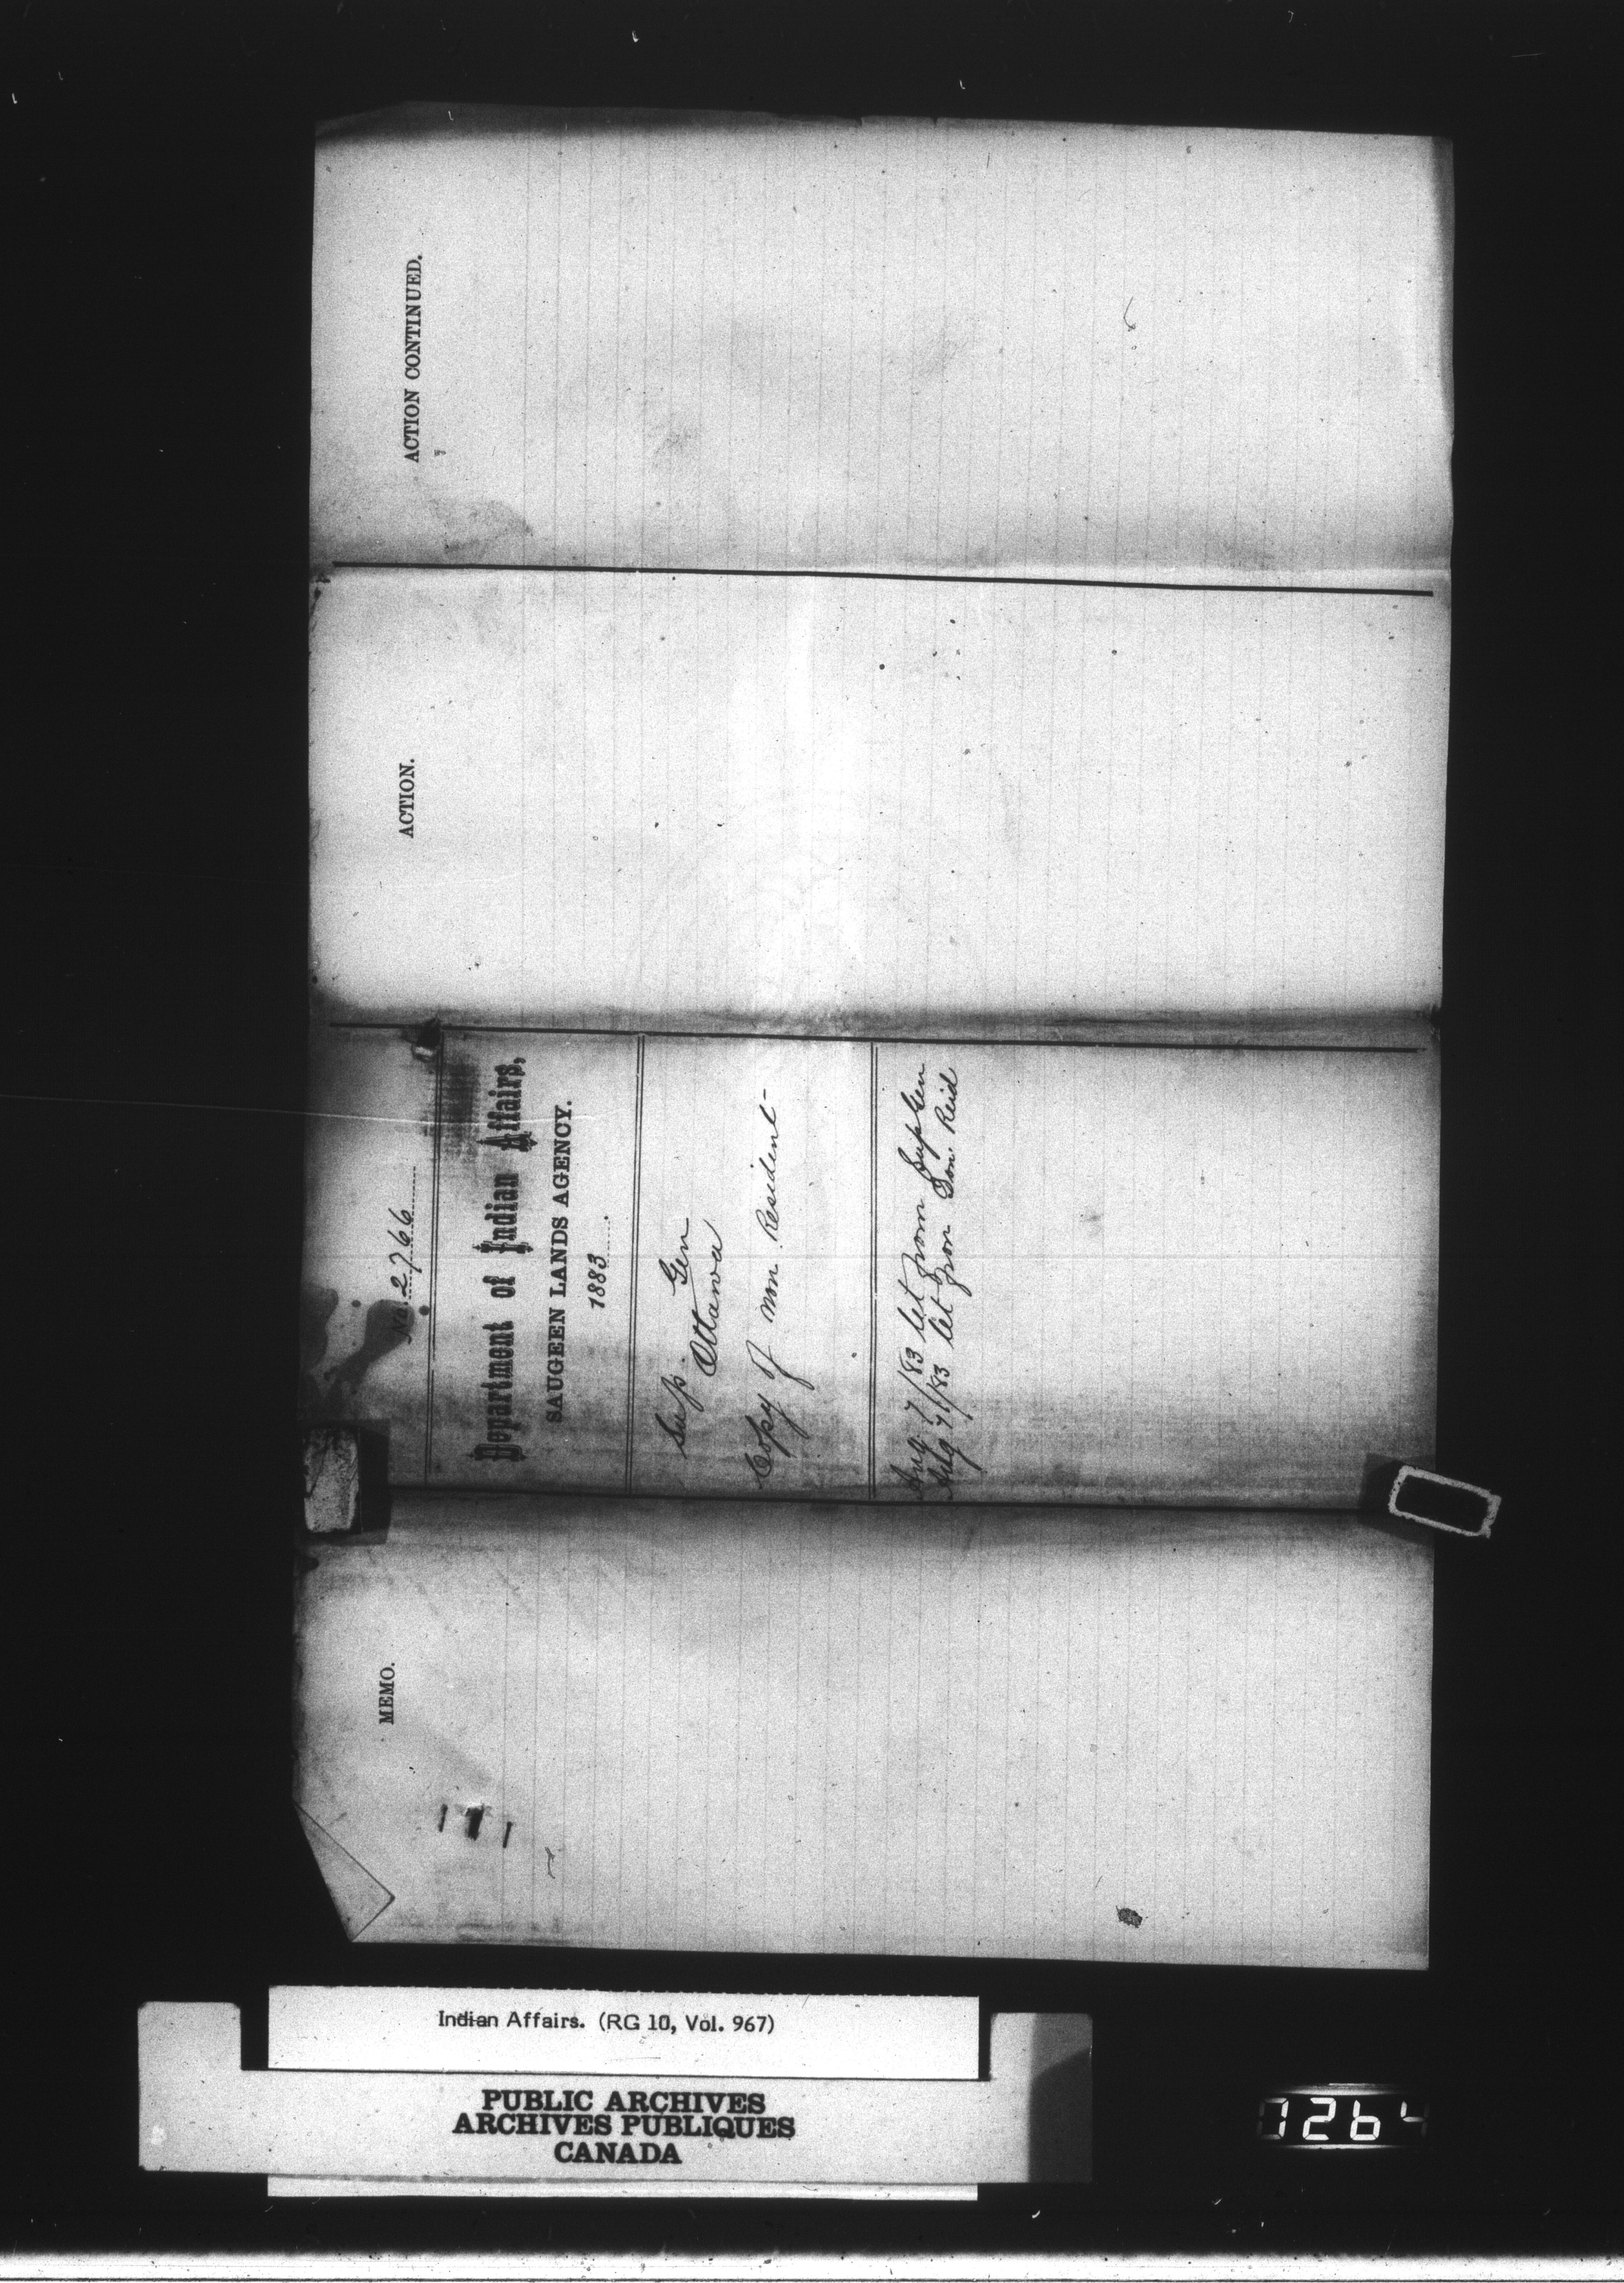 ACTION CONTINUED.
ACTION.
No. 2766
Department of Indian Affairs,
SAUGEEN LANDS AGENCY.
1883
Sup Gen
Ottawa
Copy of non Resident
Aug 7/83 let from Sup Gen
Aug 7/83 let from Reid
MEMO.
Indian Affairs. (RG 10, Vol. 967)
PUBLIC ARCHIVES
ARCHIVES PUBLIQUES
CANADA
1264